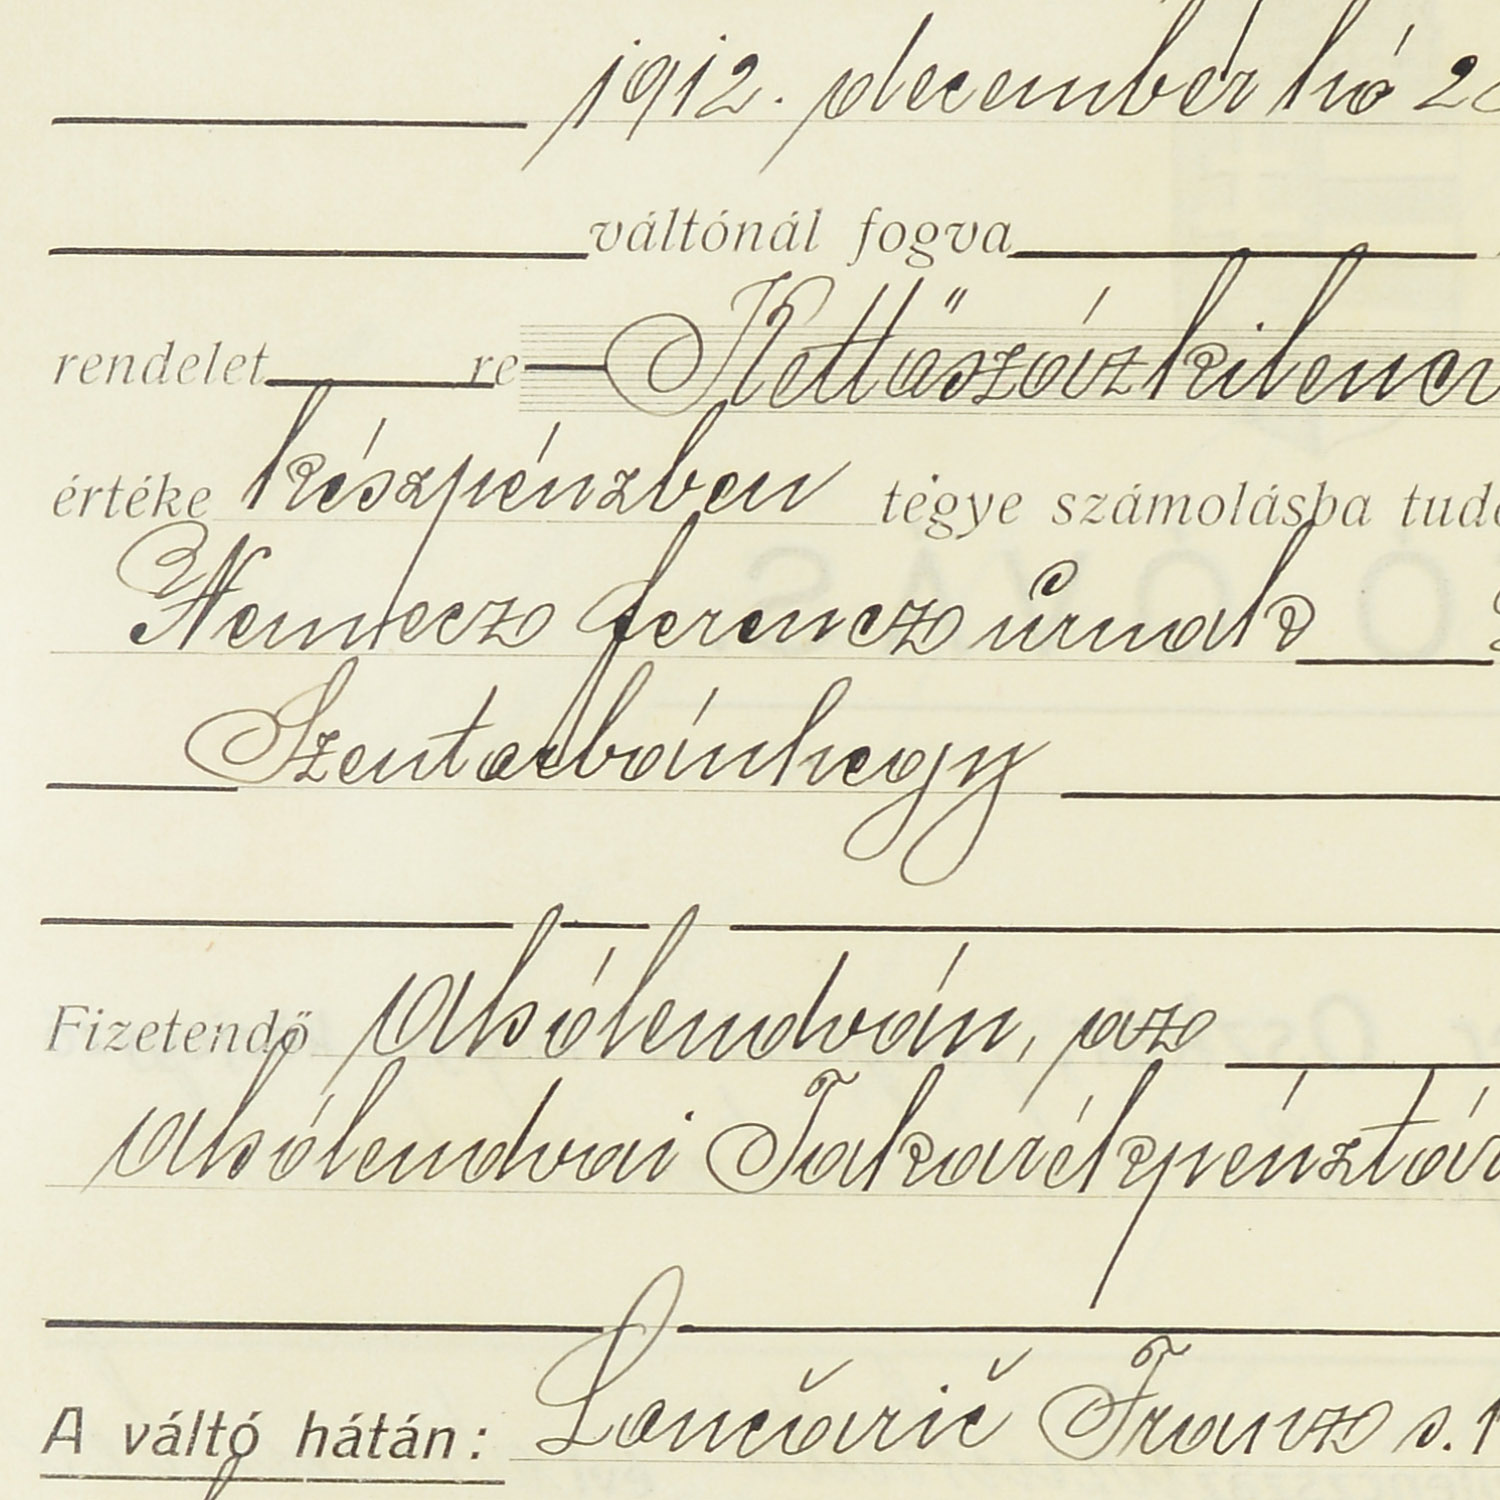 1912. december hó 2
váltónál fogva
rendelet re Kettőszázkilenc
értéke készpénzben tegye számolásba tud
Nemecz Ferencz úrnak
Szentorbánhegy
Fizetendő Alsólendván, az
Alsólendvai Takarékpénztár
A váltó hátán: Lončarič Franz s. k